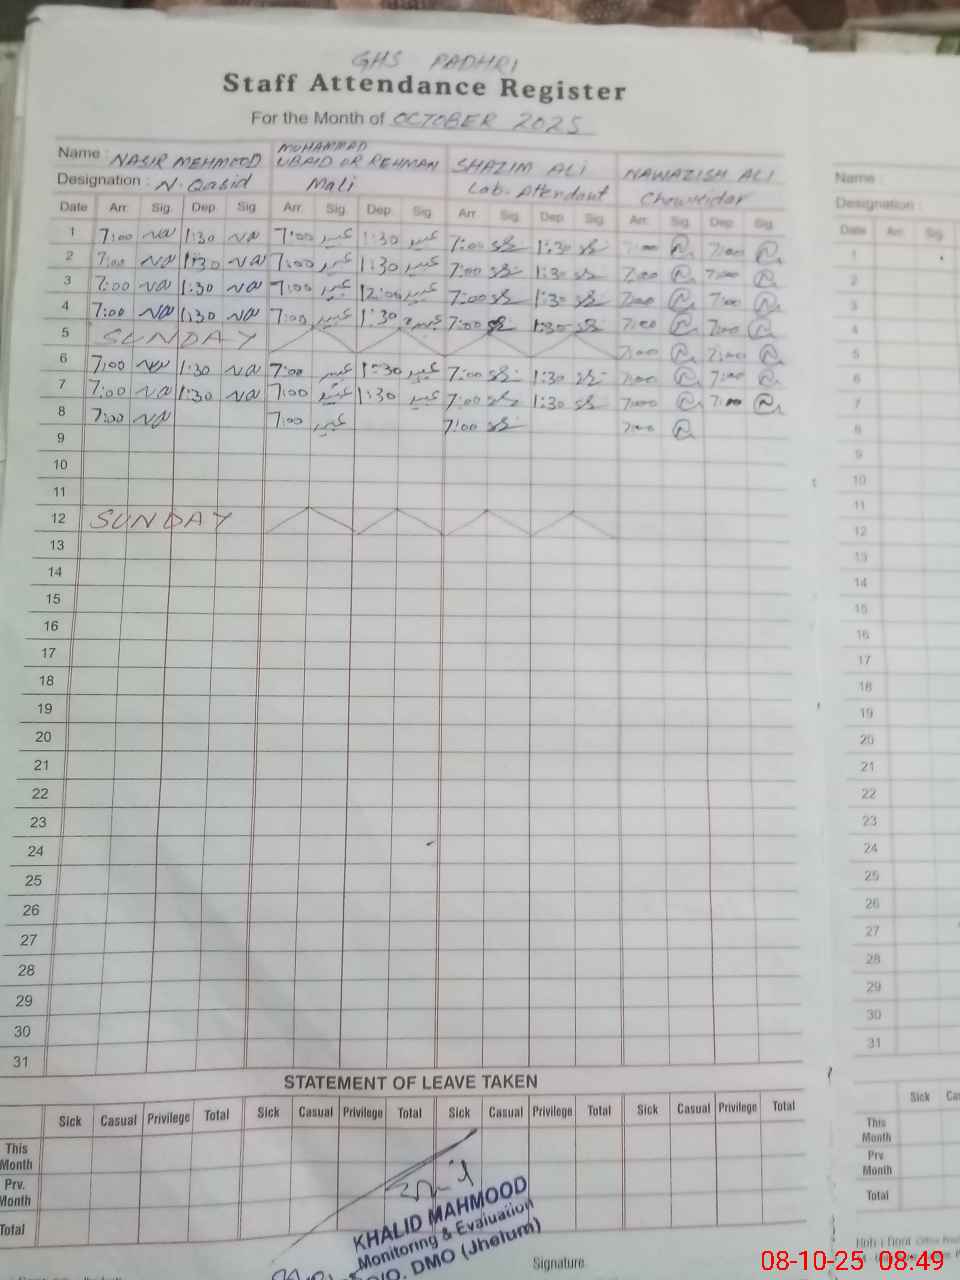 GHS PADHRI
Staff Attendance Register
For the Month of OCTOBER 2025
Name : NASIR MEHMOOD MUHAMMAD UBAID UR REHMAN SHAZIM ALI NAWAZISH ALI
Designation : N. Qasid Mali Lab. Attendant Chowkidar
Date Arr. Sig. Dep. Sig. Arr. Sig. Dep. Sig. Arr. Sig. Dep. Sig. Arr. Sig. Dep. Sig.
1 7:00 NM 1:30 NM 7:00 عبید 1:30 عبید 7:00 1:30 7:00 7:00
2 7:00 NM 1:30 NM 7:00 عبید 1:30 عبید 7:00 1:30 7:00 7:00
3 7:00 NM 1:30 NM 7:00 عبید 12:00 عبید 7:00 1:30 7:00 7:00
4 7:00 NM 1:30 NM 7:00 عبید 1:30 عبید 7:00 1:30 7:00 7:00
5 SUNDAY 7:00 7:00
6 7:00 NM 1:30 NM 7:00 عبید 1:30 عبید 7:00 1:30 7:00 7:00
7 7:00 NM 1:30 NM 7:00 عبید 1:30 عبید 7:00 1:30 7:00 7:00
8 7:00 NM 7:00 عبید 7:00 7:00
9
10
11
12 SUNDAY
13
14
15
16
17
18
19
20
21
22
23
24
25
26
27
28
29
30
31
STATEMENT OF LEAVE TAKEN
Sick Casual Privilege Total Sick Casual Privilege Total Sick Casual Privilege Total Sick Casual Privilege Total
This Month
Prv. Month
Total
KHALID MAHMOOD
Monitoring & Evaluation
DMO (Jhelum)
Signature
Name :
Designation :
Date Arr. Sig.
1
2
3
4
5
6
7
8
9
10
11
12
13
14
15
16
17
18
19
20
21
22
23
24
25
26
27
28
29
30
31
Sick
This Month
Prv. Month
Total
08-10-25 08:49